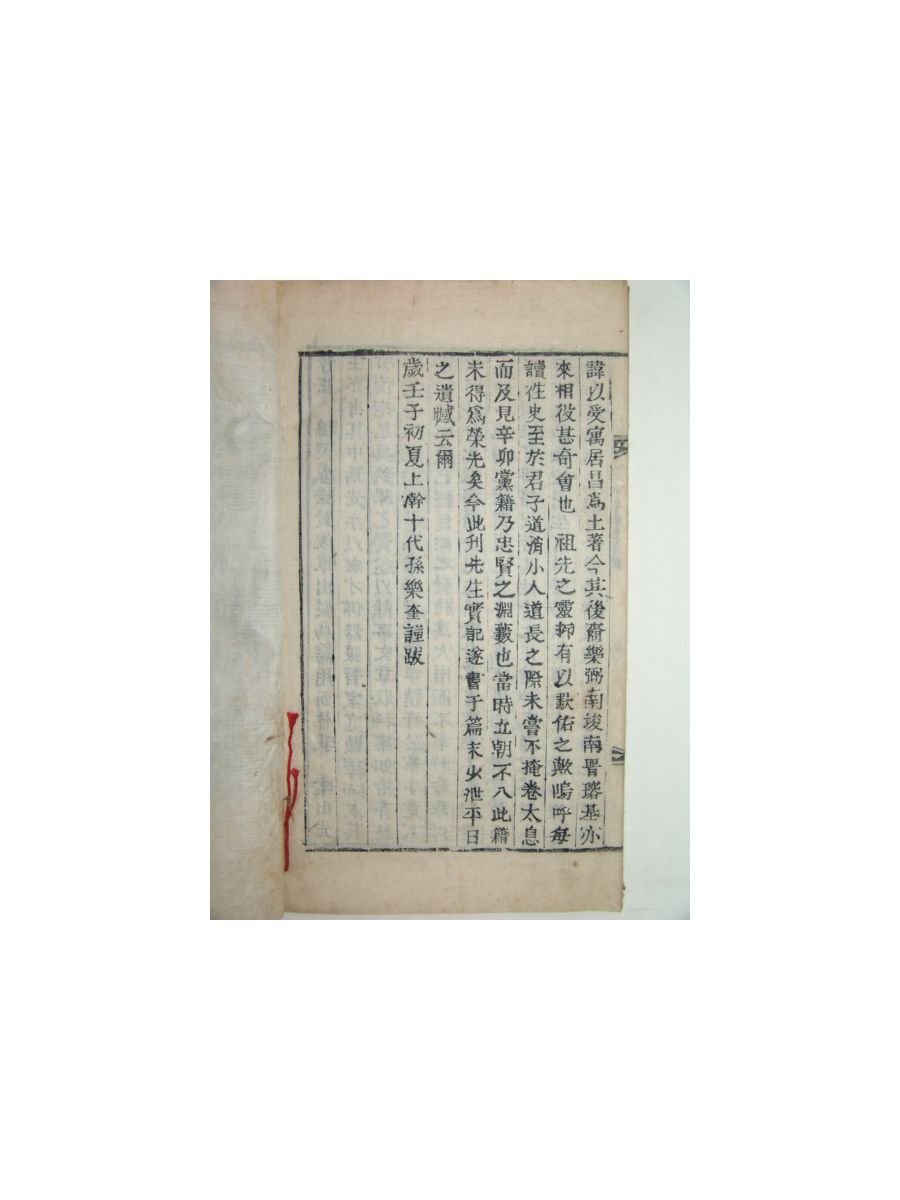 諱以受寓居昌爲土著今其後裔樂弼南埈南晋瑢基亦
來相役甚奇會也 祖先之靈抑有以默佑之歟嗚呼每
讀往史至於君子道消小人道長之際未嘗不掩卷太息
而及見辛卯黨籍乃忠賢之淵藪也當時立朝不入此籍
未得爲榮光矣今此刊先生實記遂書于篇末少泄平日
之遺憾云爾
歲壬子初夏上澣十代孫樂奎謹跋